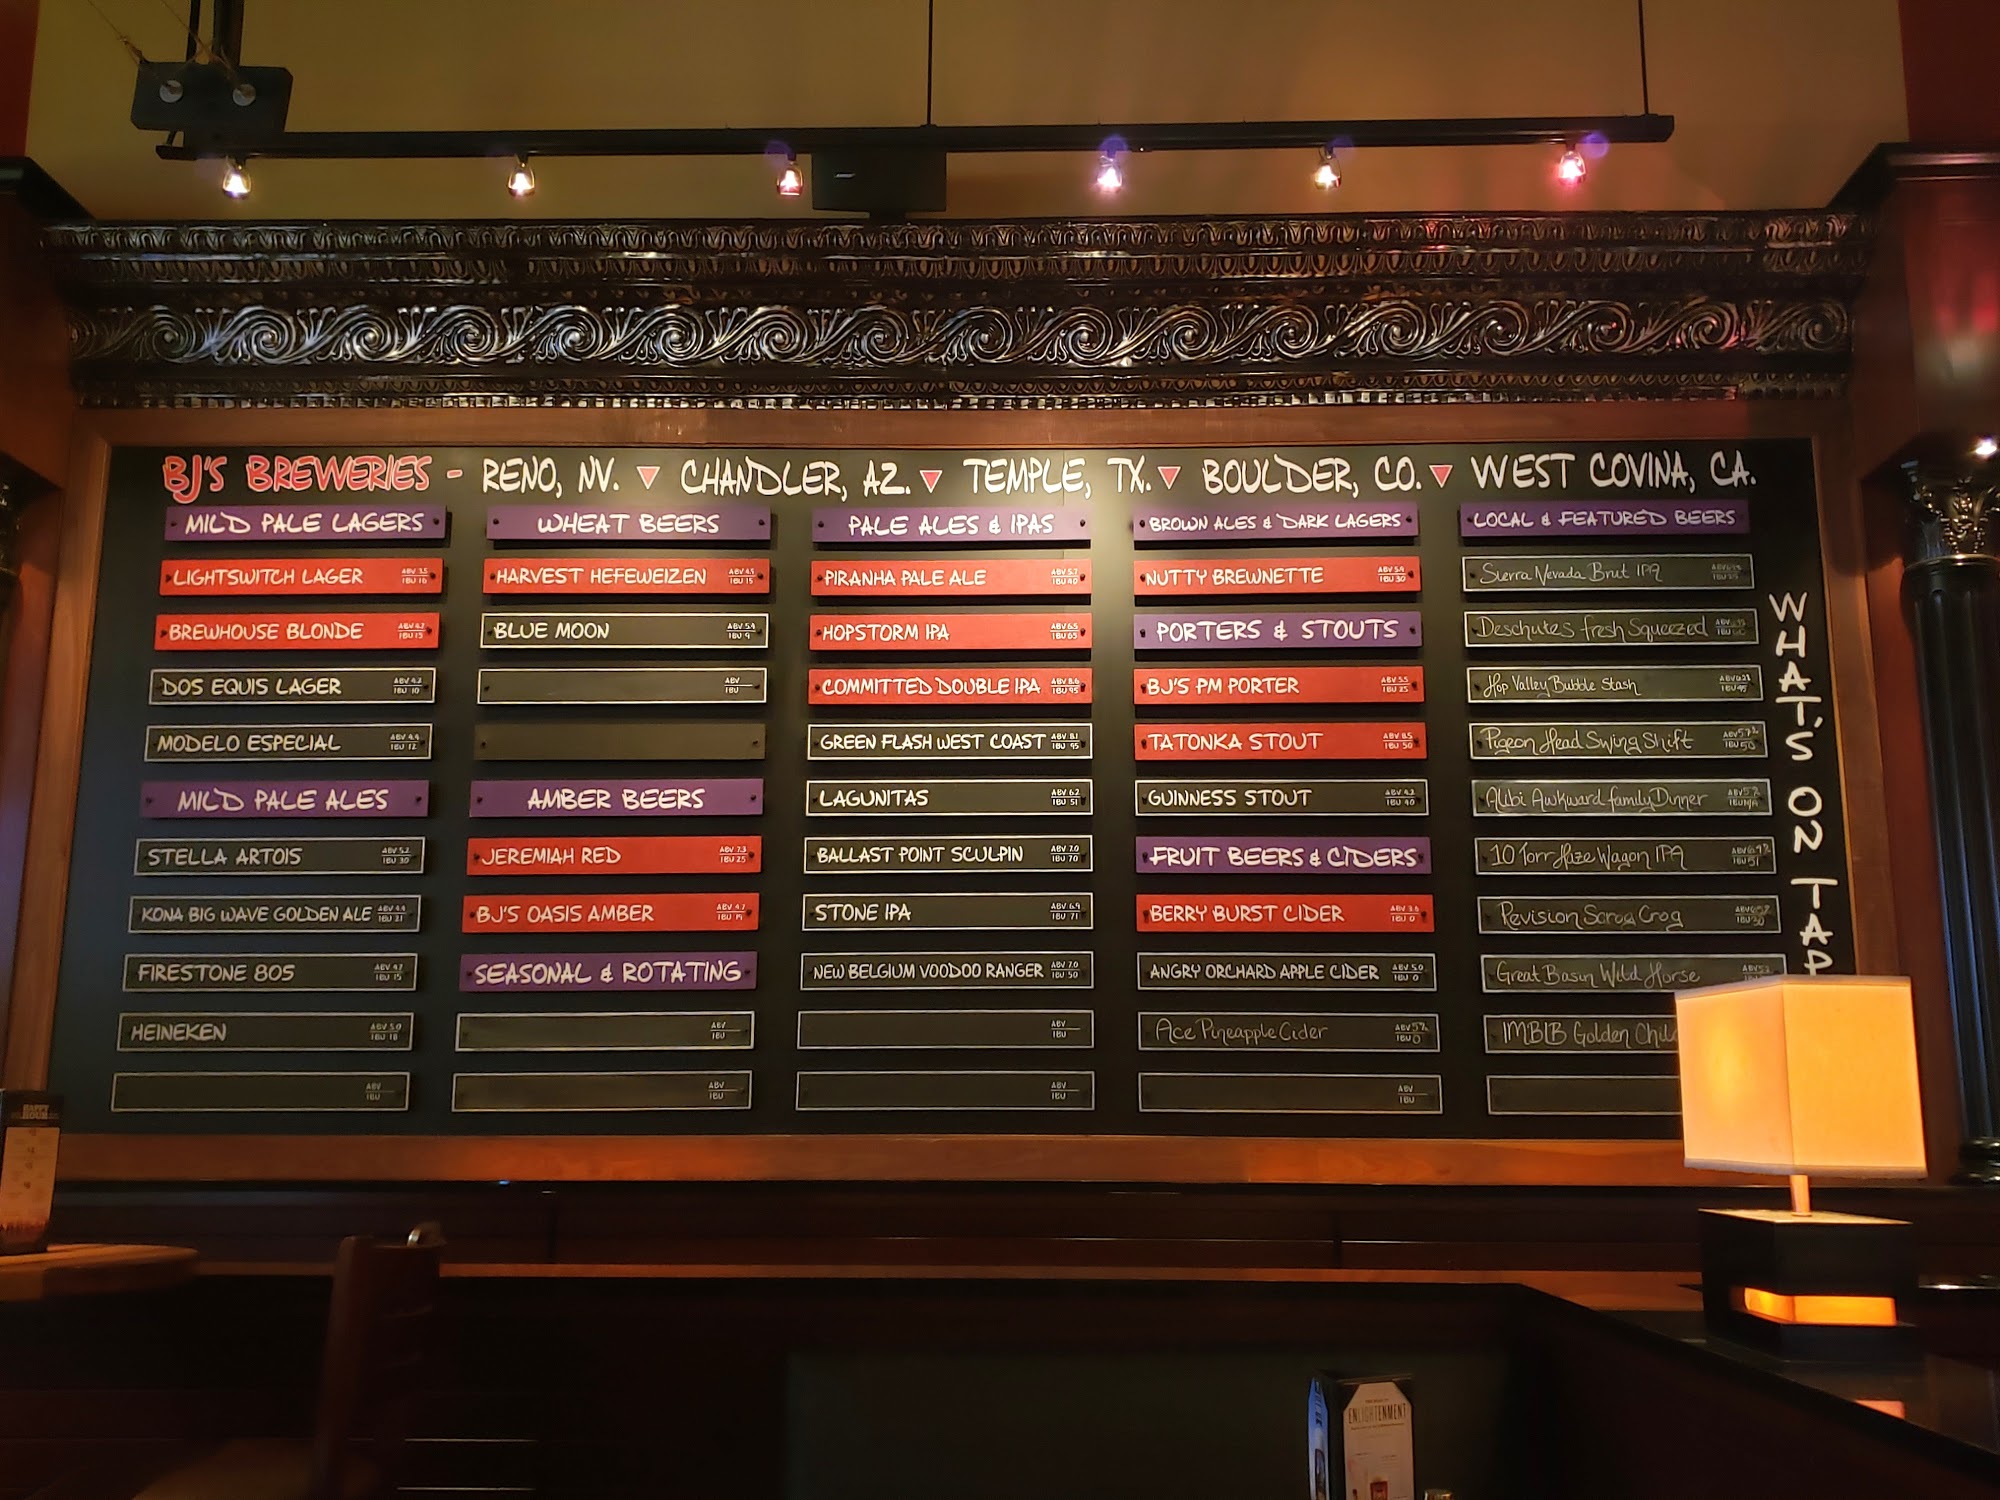 BJ'S BREWERIES - RENO, NV. CHANDLER, AZ. TEMPLE, TX. BOULDER, CO. WEST COVINA, CA.
MILD PALE LAGERS
LIGHTSWITCH LAGER ABV 3.5 IBU 16
BREWHOUSE BLONDE ABV 4.7 IBU 15
DOS EQUIS LAGER ABV 4.2 IBU 10
MODELO ESPECIAL ABV 4.4 IBU 12
MILD PALE ALES
STELLA ARTOIS ABV 5.2 IBU 30
KONA BIG WAVE GOLDEN ALE ABV 4.4 IBU 21
FIRESTONE 805 ABV 4.7 IBU 15
HEINEKEN ABV 5.0 IBU 18
ABV
IBU
WHEAT BEERS
HARVEST HEFEWEIZEN ABV 4.9 IBU 15
BLUE MOON ABV 5.4 IBU 9
ABV
IBU
AMBER BEERS
JEREMIAH RED ABV 7.3 IBU 25
BJ'S OASIS AMBER ABV 4.7 IBU 19
SEASONAL & ROTATING
ABV
IBU
ABV
IBU
PALE ALES & IPAS
PIRANHA PALE ALE ABV 5.7 IBU 40
HOPSTORM IPA ABV 6.5 IBU 65
COMMITTED DOUBLE IPA ABV 8.6 IBU 95
GREEN FLASH WEST COAST ABV 8.1 IBU 95
LAGUNITAS ABV 6.2 IBU 51
BALLAST POINT SCULPIN ABV 7.0 IBU 70
STONE IPA ABV 6.9 IBU 71
NEW BELGIUM VOODOO RANGER ABV 7.0 IBU 50
ABV
IBU
ABV
IBU
BROWN ALES & DARK LAGERS
NUTTY BREWNETTE ABV 5.9 IBU 30
PORTERS & STOUTS
BJ'S PM PORTER ABV 5.5 IBU 25
TATONKA STOUT ABV 8.5 IBU 50
GUINNESS STOUT ABV 4.2 IBU 40
FRUIT BEERS & CIDERS
BERRY BURST CIDER ABV IBU 0
ANGRY ORCHARD APPLE CIDER ABV 5.0 IBU 0
Ace Pineapple Cider ABV 5% IBU 0
ABV
IBU
LOCAL & FEATURED BEERS
Sierra Nevada Brut IPA ABV IBU
Deschutes Fresh Squeezed ABV IBU
Hop Valley Bubble Stash ABV IBU
Pigeon Head Swing Shift ABV IBU 50
Alibi Awkward Family Dinner ABV IBU N/A
10 Torr Haze Wagon IPA ABV IBU 51
Revision Scrog Crog ABV IBU
Great Basin Wild Horse ABV
IMBIB Golden Chil
WHAT'S ON TAP
HAPPY HOUR
ENLIGHTENMENT